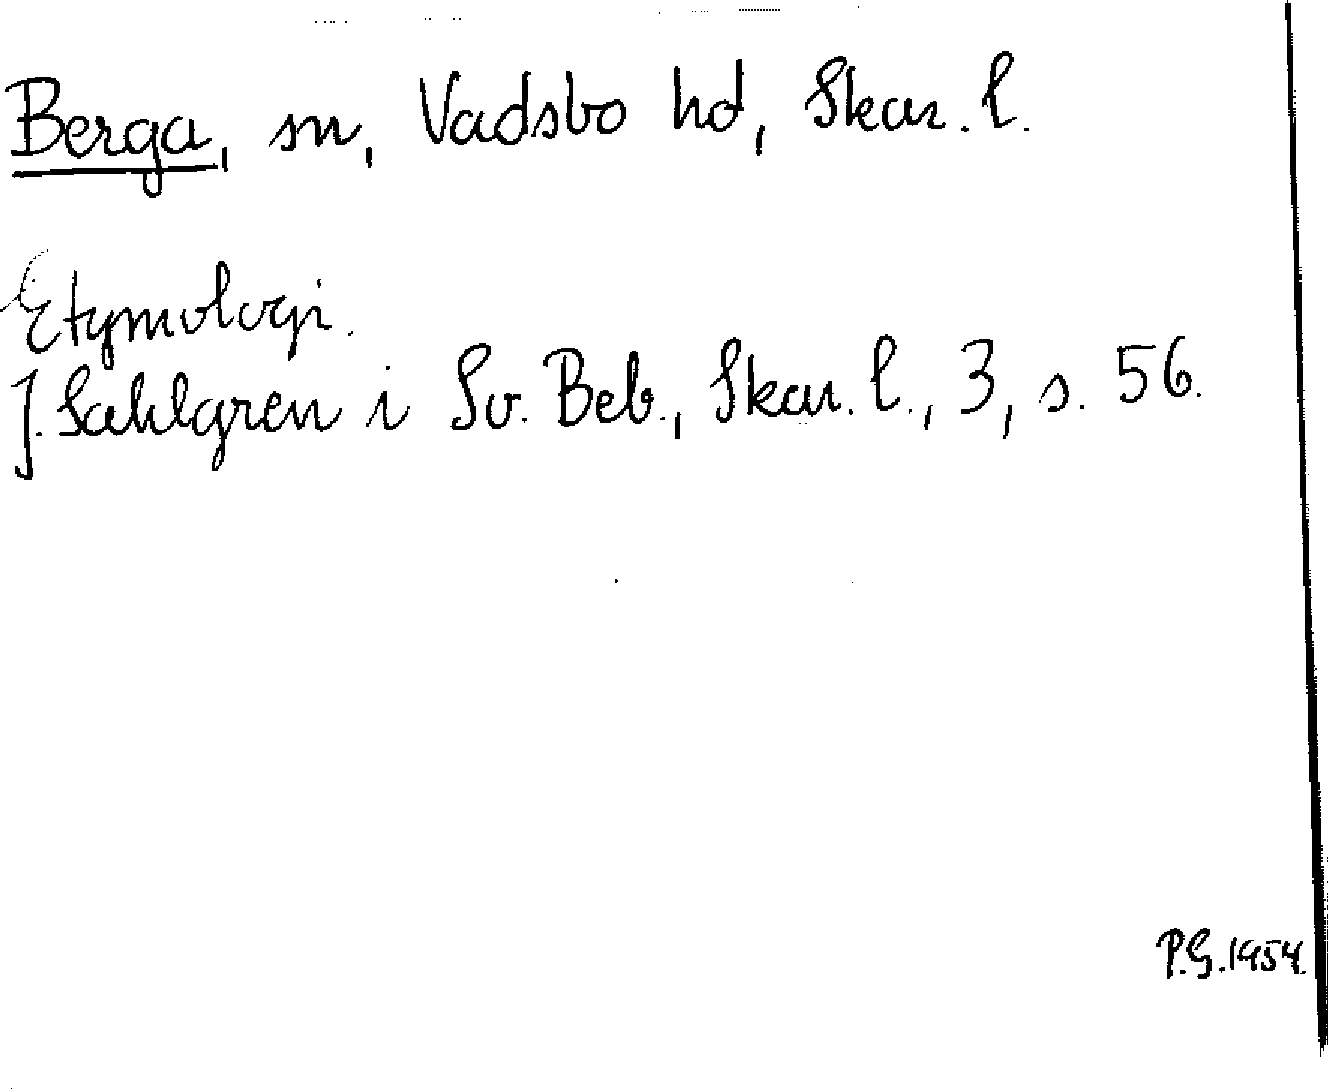 Berga, sn, Vadsbo hd, Skar. l.
Etymologi.
J. Sahlgren i Sv. Beb., Skar. l., 3, s. 56.
P.G. 1954.